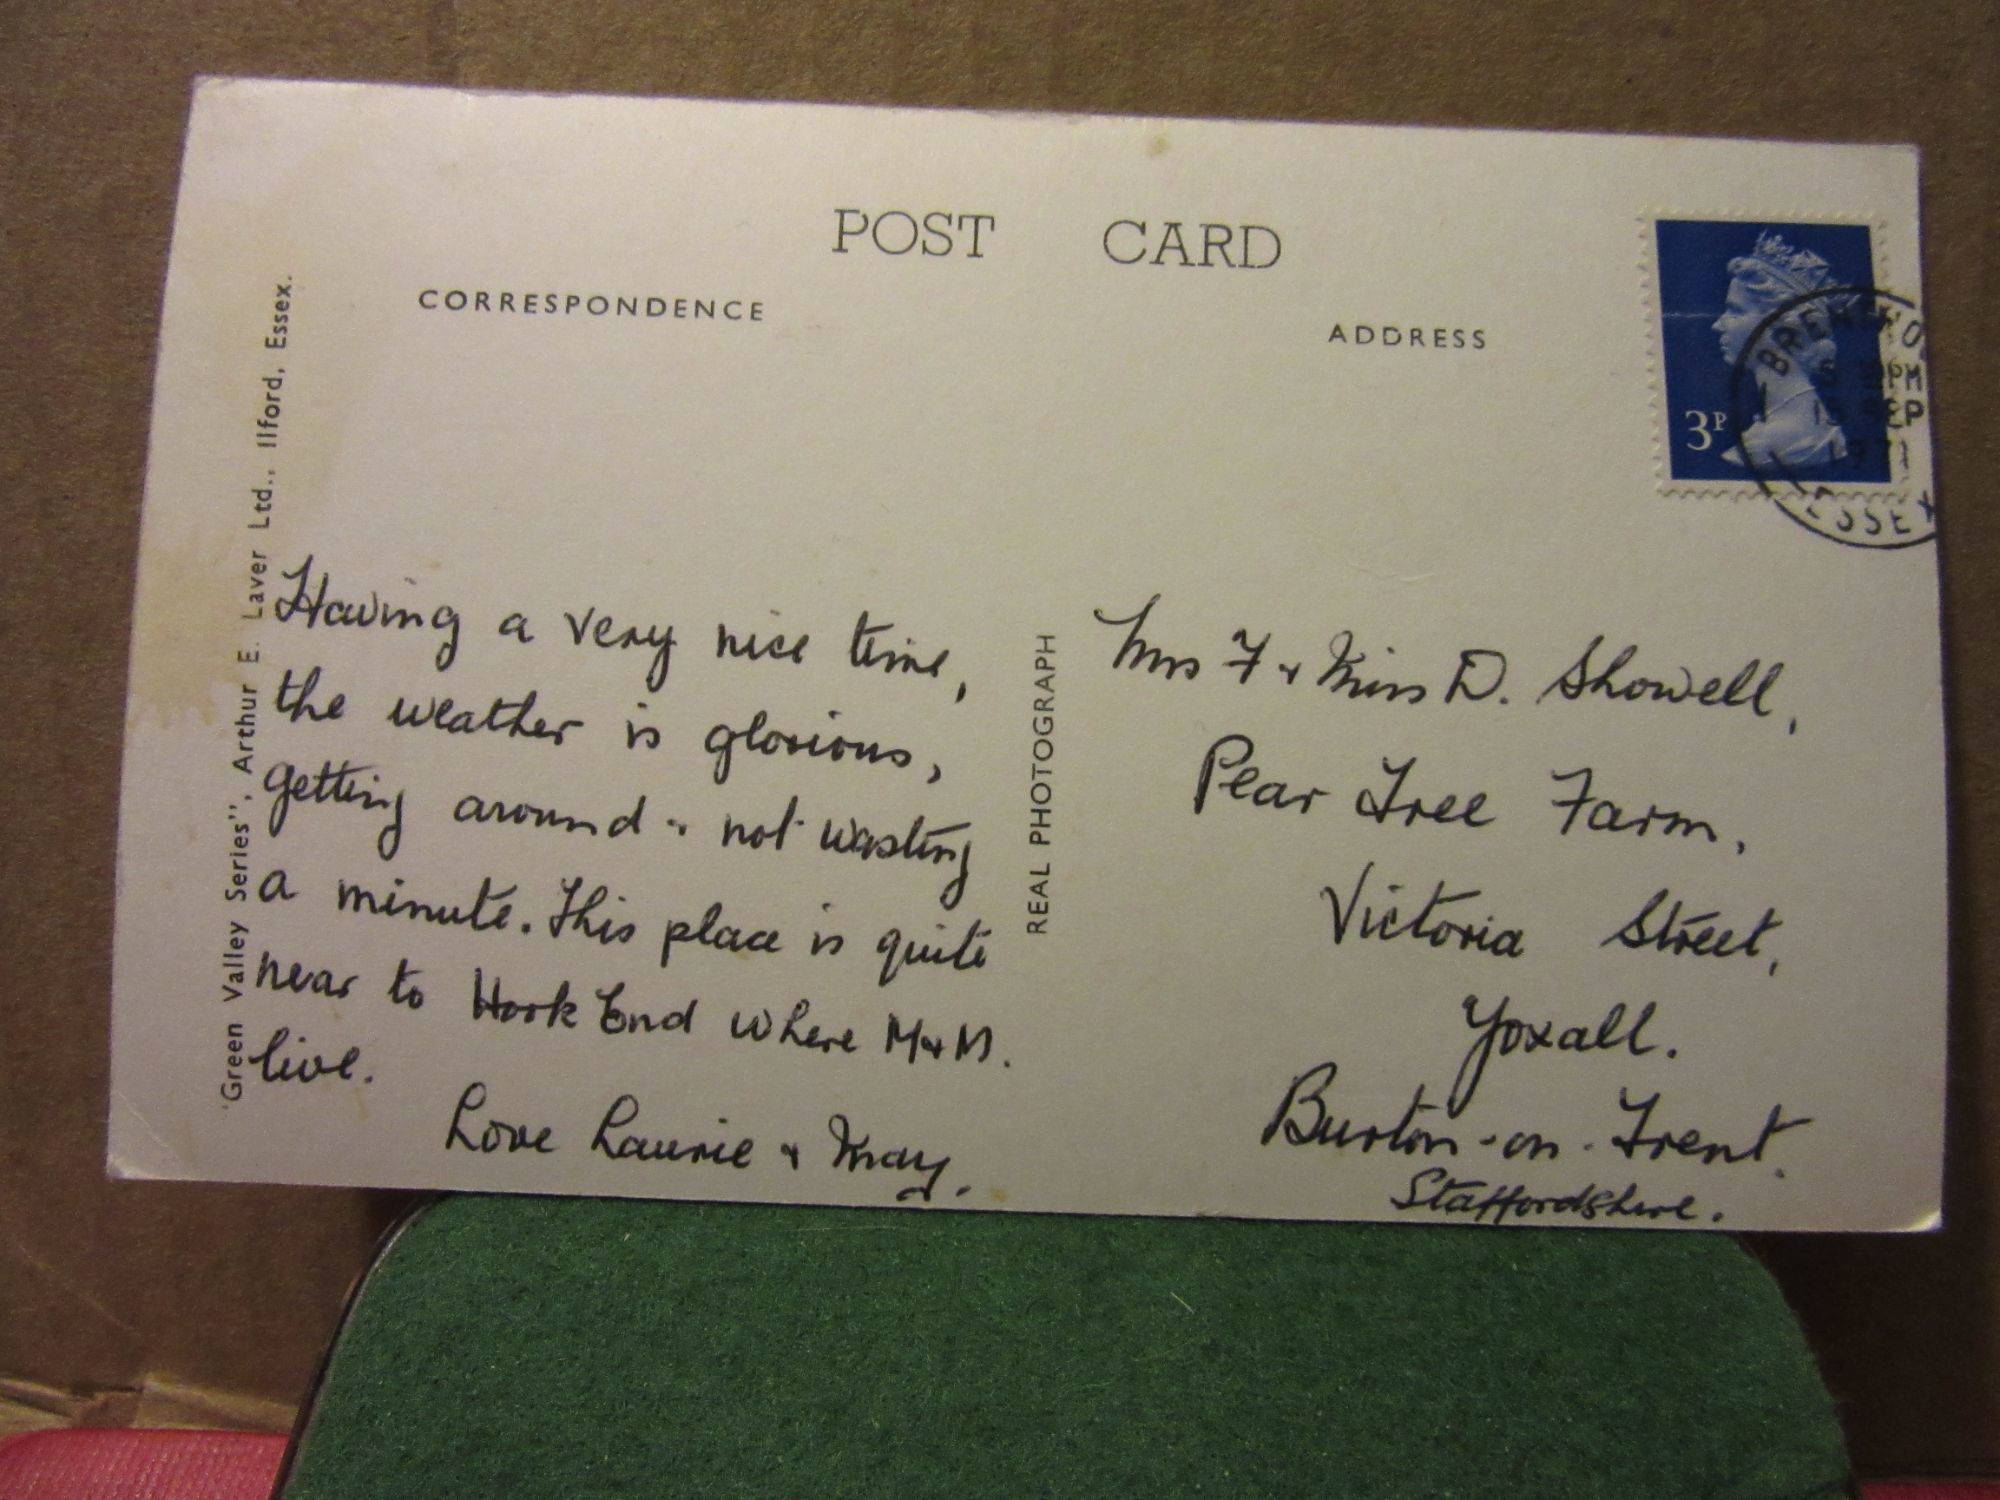 POST CARD
CORRESPONDENCE
ADDRESS
"Green Valley Series", Arthur E. Laver Ltd., Ilford, Essex.
REAL PHOTOGRAPH
3P
PM
SEP
1971
ESSEX
Having a very nice time,
the weather is glorious,
getting around & not wasting
a minute. This place is quite
near to Hook End where M & M.
live.
Love Laurie & May.
Mrs F & Miss D. Showell,
Pear Tree Farm,
Victoria Street,
Yoxall.
Burton-on-Trent.
Staffordshire.